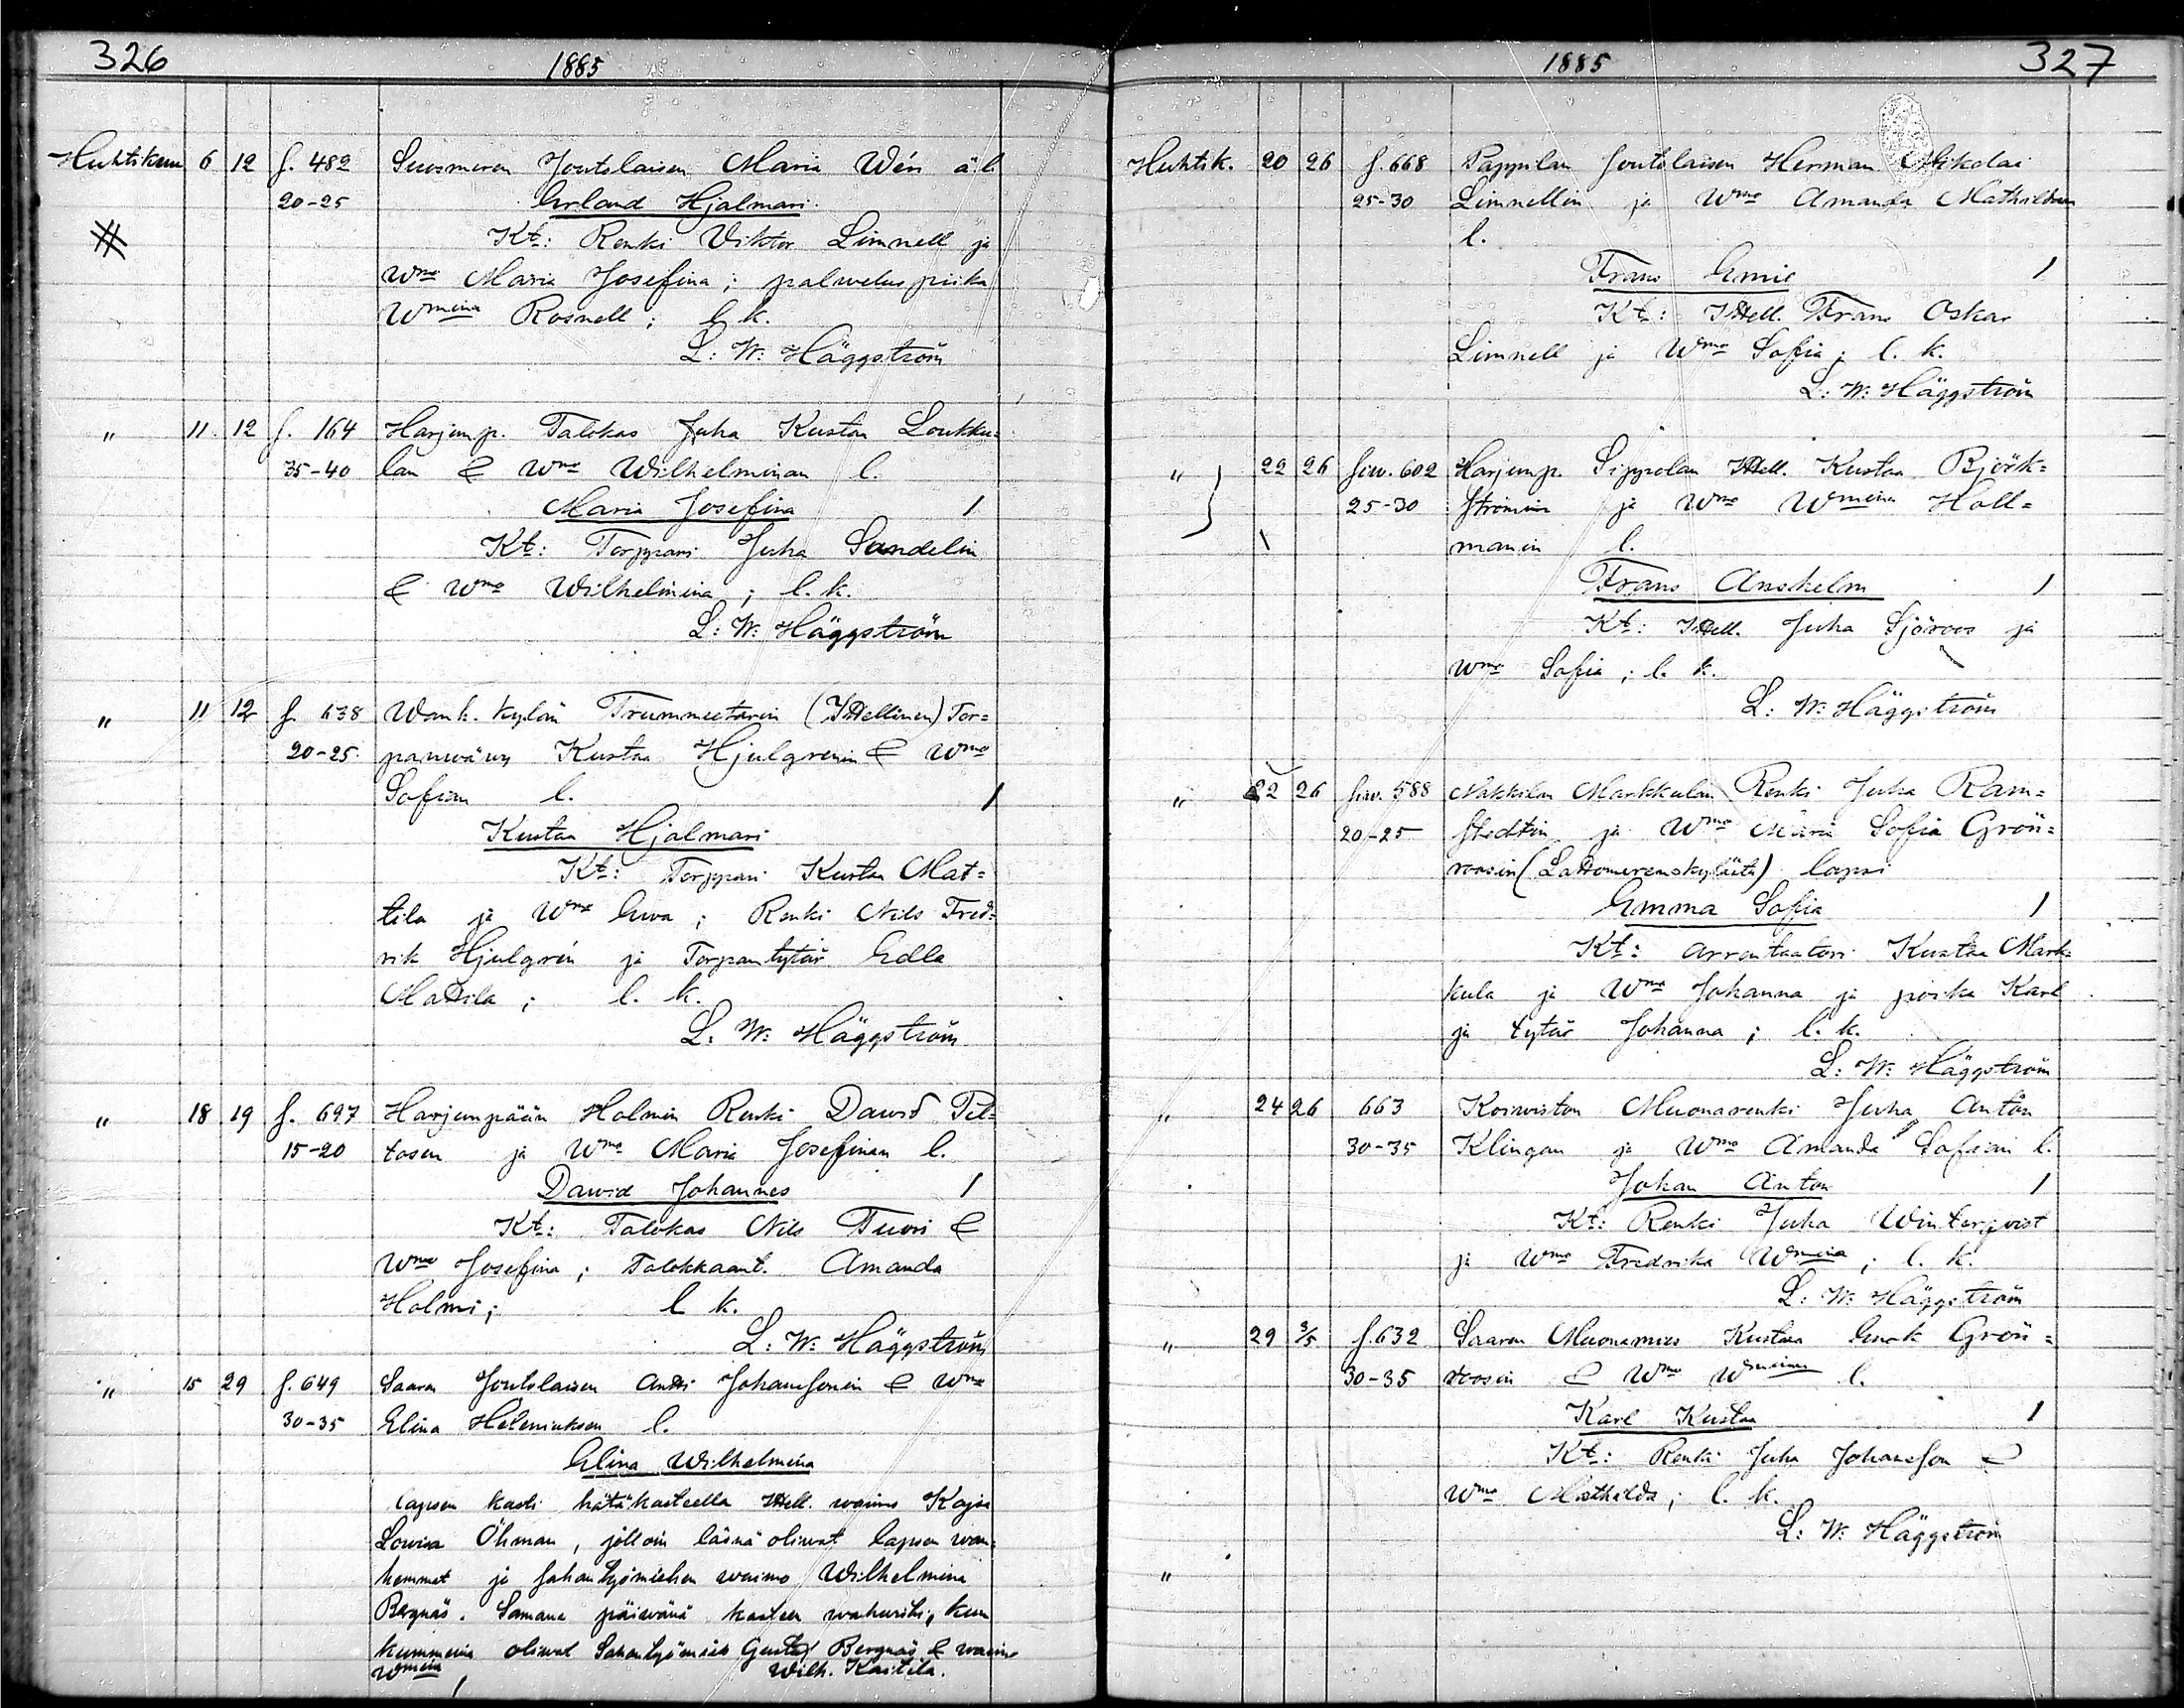 326
1885
Huhtikuu 6 12 f. 482 Suosmeren Joutolaisen Maria Wén ä. l.
20-25 Erland Hjalmari
Kt: Renki Viktor Limnell ja
Wmo Maria Josefina; palwelus piika
Wmina Rosnell; l. k.
L: W: Häggström
" 11 12 f. 164 Harjunp. Talokas Juha Kustan Loukku=
35-40 lan & Wmo Wilhelminan l.
Maria Josefina 1
Kt: Torppari Juha Sandelin
& Wmo Wilhelmina; l. k.
L: W: Häggström
" 11 12 f. 638 Wanh. kylän Trummeetarin (Ittellinen) Tor=
20-25 panwäwy Kustaa Hjulgrenin & Wmo
Sofian l. 1
Kustaa Hjalmari
Kt: Torppari Kustaa Mat=
tila ja Wmo Ewa; Renki Nils Fred=
rik Hjulgrén ja Torpantytär Edla
Mattila; l. k.
L. W: Häggström
" 18 19 f. 697 Harjunpään Holmin Renki Dawid Pel=
15-20 tosen ja Wmo Maria Josefinan l.
Dawid Johannes 1
Kt: Talokas Nils Tuori &
Wmo Josefina; Talokkaant. Amanda
Holmi; l k.
L: W: Häggström
" 15 29 f. 649 Saaren Joutolaisen Antti Johanssonin & Wmo
30-35 Elina Heleniuksen l.
Elina Wilhelmina
lapsen kasti hätäkasteella Ittell. waimo Kajsa
Lowisa Öhman, jolloin läsnä oliwat lapsen wan=
hemmat ja Sahantyömiehen waimo Wilhelmina
Bergnäs. Samana päiwänä kasteen wahwisti, kun
kummeina oliwat Sahantyömies Gustaf Bergnäs & waimo
Wmina Wilh. Kastila.
1
1885
327
Huhtik. 20 26 f. 668 Pappilan Joutolaisen Herman Nikolai
25-30 Limnellin ja Wmo Amanda Mathildan
l.
Frans Emil 1
Kt: Ittell. Frans Oskar
Limnell ja Wmo Sofia; l. k.
L: W: Häggström
" 22 26 siw. 602 Harjunp. Sippolan Ittell. Kustaa Björk=
25-30 strömin ja Wmo Wmina Holl=
manin l.
Frans Anshelm 1
Kt: Ittell. Juha Sjöroos ja
Wmo Sofia; l. k.
L: W: Häggström
" 22 26 siw. 588 Nakkilan Markkulan Renki Juha Ram=
20-25 stedtin ja Wmo Maria Sofia Grön=
roosin (Lattomerenskylästä) lapsi
Emma Sofia 1
Kt: Arrentaatori Kustaa Mark=
kula ja Wmo Johanna ja poika Karl
ja tytär Johanna; l. k.
L: W: Häggström
" 24 26 663 Koiwiston Muonarenki Juha Anton
30-35 Klingan ja Wmo Amanda Sofian l.
Johan Anton 1
Kt: Renki Juha Winterqvist
ja Wmo Fredrika Wmina; l. k.
L: W: Häggström
" 29 3/5 f. 632 Saaren Muonamies Kustaa Enok Grön=
30-35 roosin & Wmo Wminan l.
Karl Kustaa 1
Kt: Renki Juha Johansson &
Wmo Mathilda; l. k.
L: W: Häggström
"